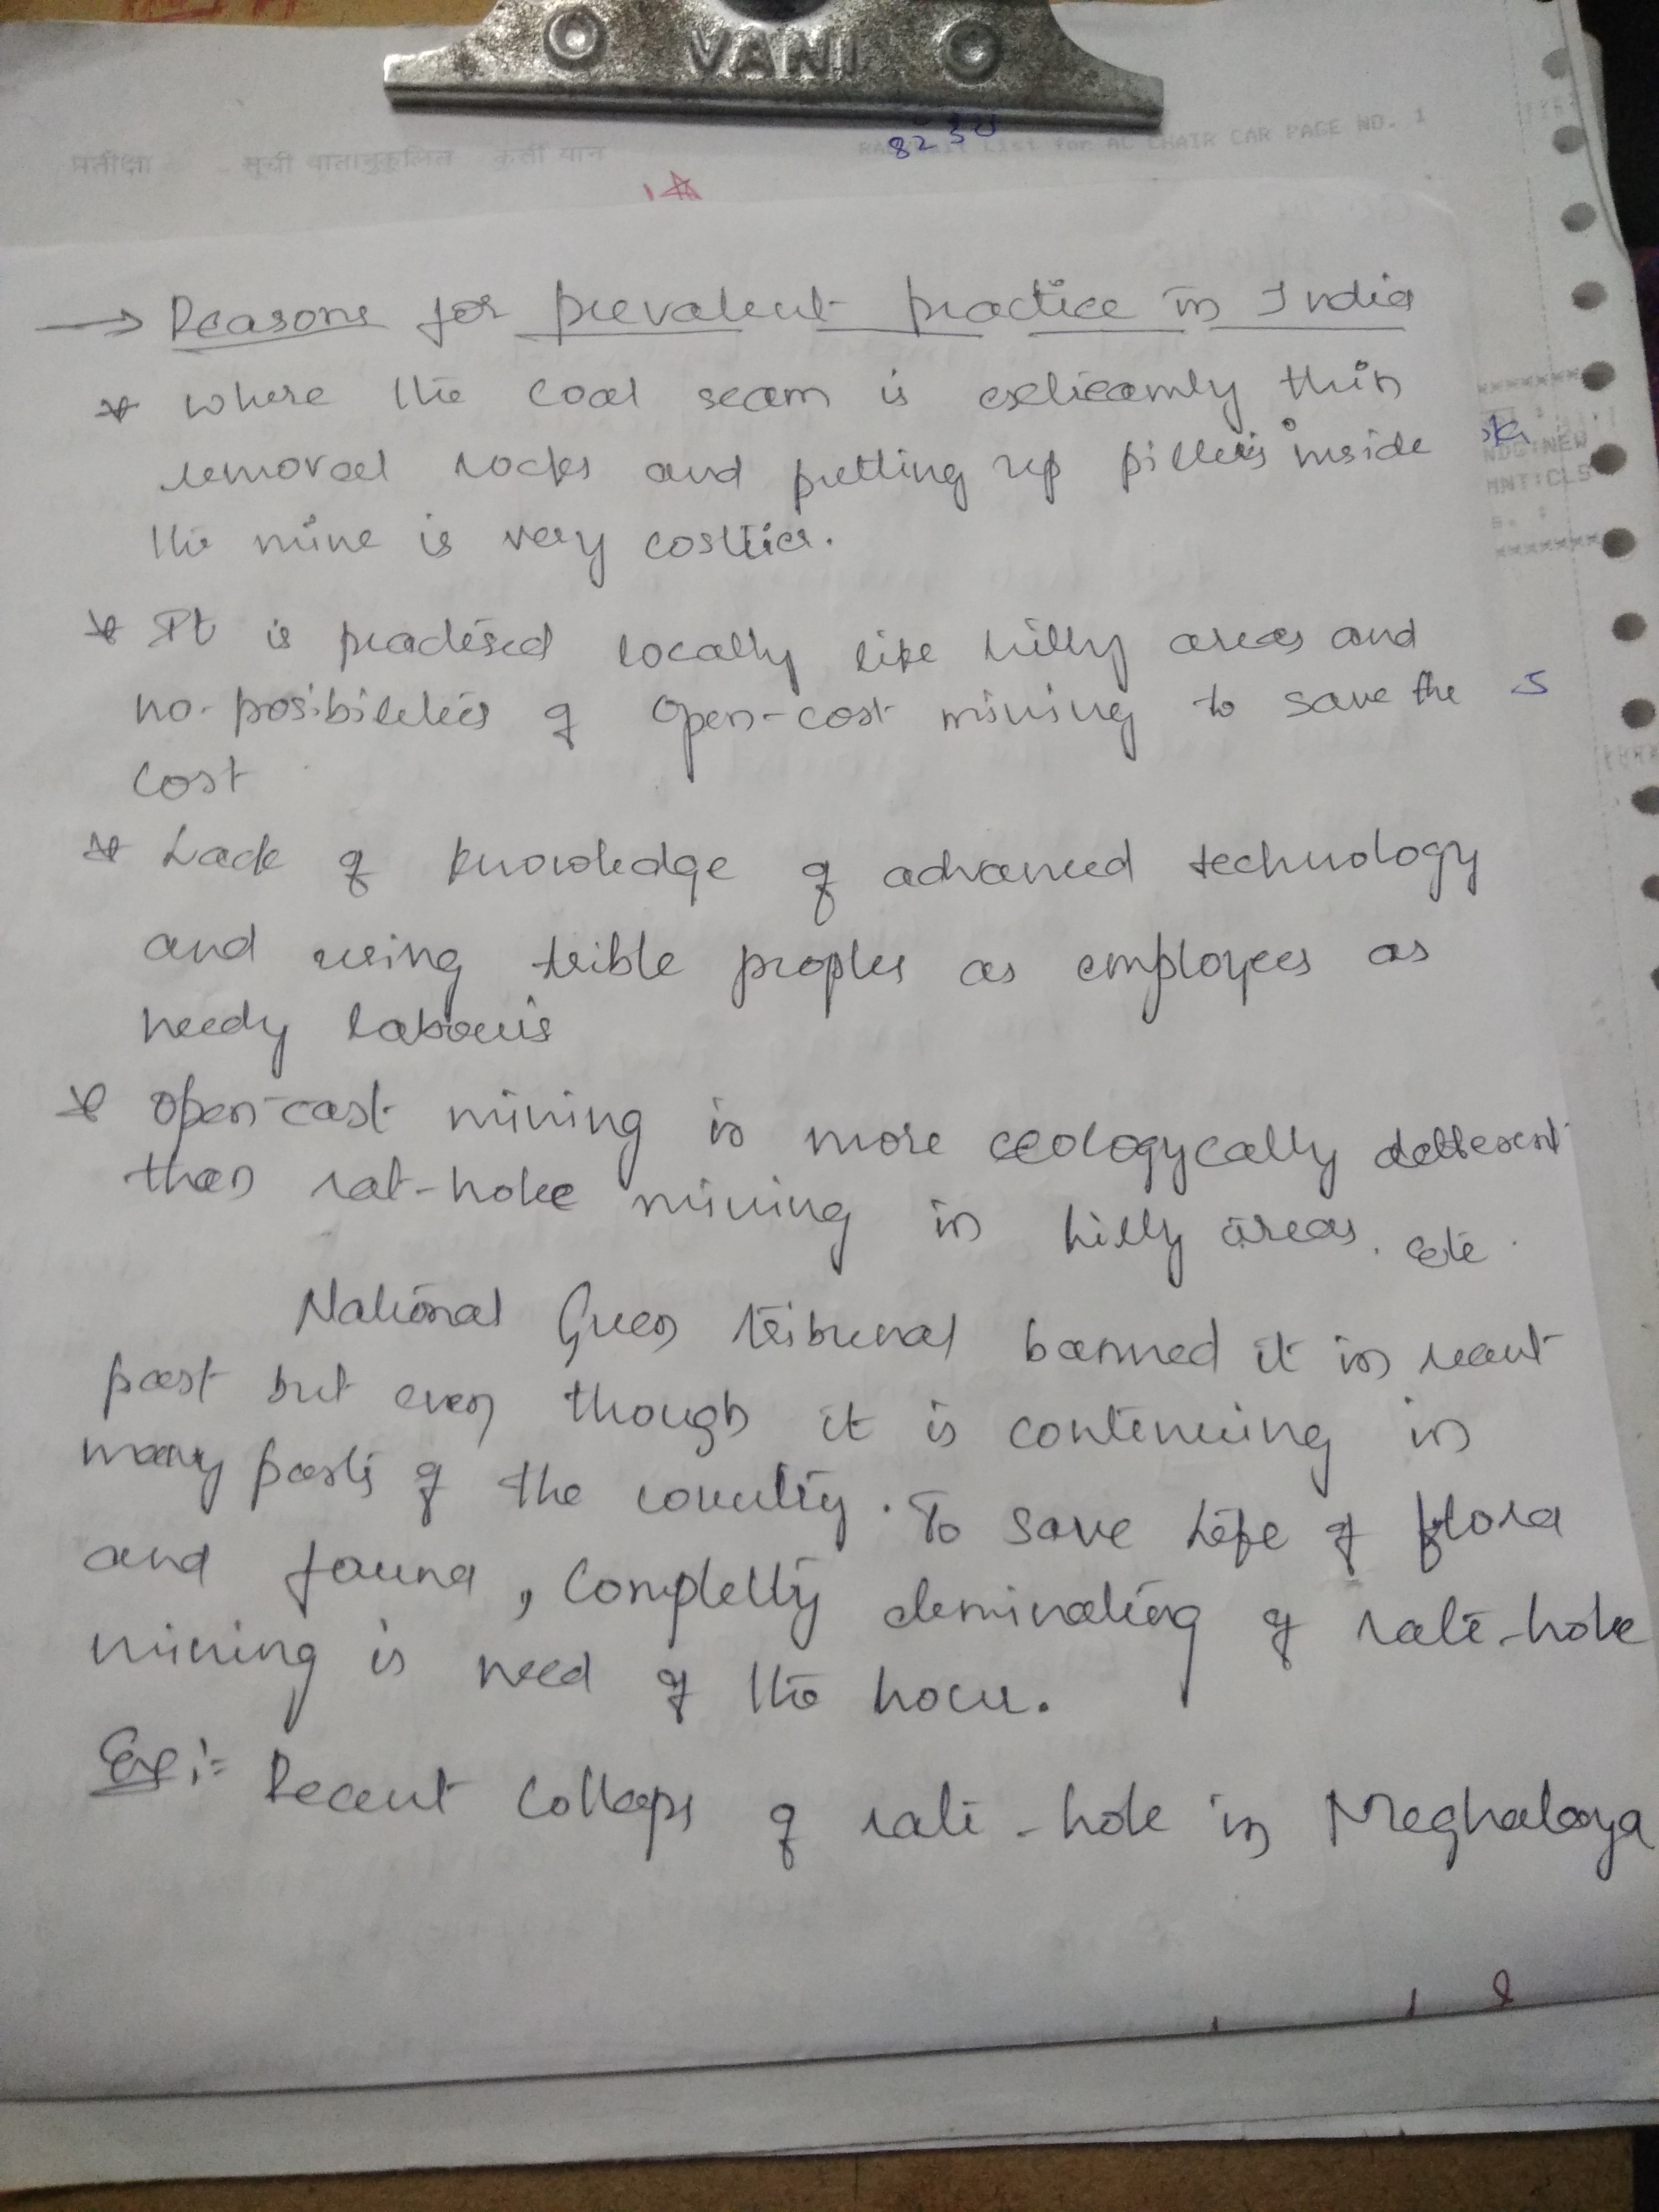 VANI
8230
प्रतीक्षा सूची वातानुकूलित कुर्सी यान
List for AC CHAIR CAR PAGE NO. 1
→ Reasons for prevalent practice in India
* where the coal seam is extreamly thin
removal rocks and putting up pillers inside
the mine is very costlier.
* It is practised locally like hilly areas and
no posibilities of open-cost mining to save the
cost
* Lack of knowledge of advanced technology
and using trible peoples as employees as
needy labours
* open-cast mining is more ecologycally
than rat-hole mining in hilly areas. etc.
National Green tribunal banned it in recent
past but even though it is continuing in
many parts of the country. To save life of flora
and fauna, completly eleminating of rate-hole
mining is need of the hour.
Ex:- Recent Collaps of rate-hole in Meghalaya